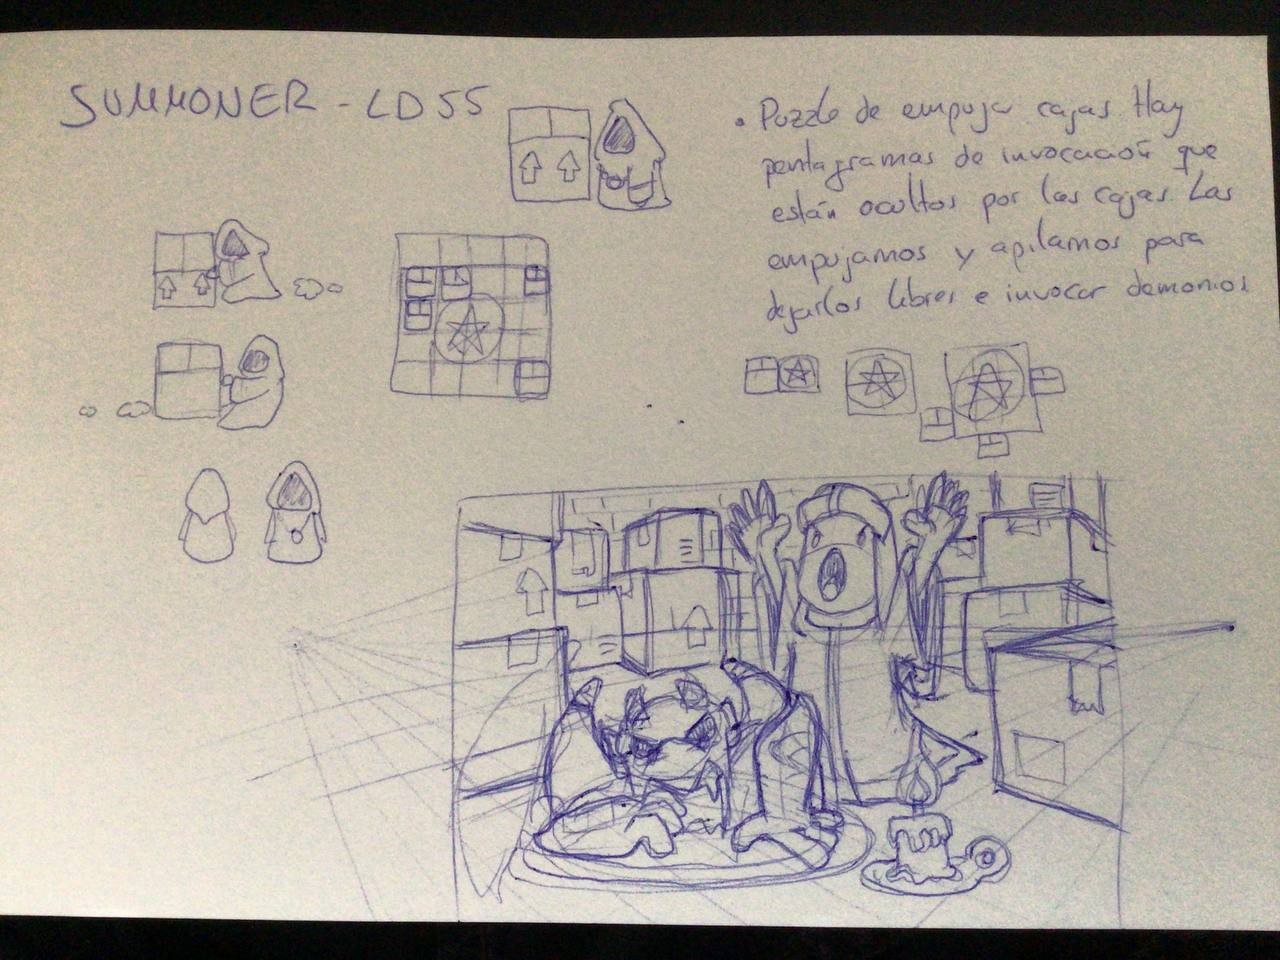 SUMMONER - LD55
• Puzzle de empujar cajas. Hay
pentagramas de invocación que
están ocultos por las cajas. Las
empujamos y apilamos para
dejarlos libres e invocar demonios